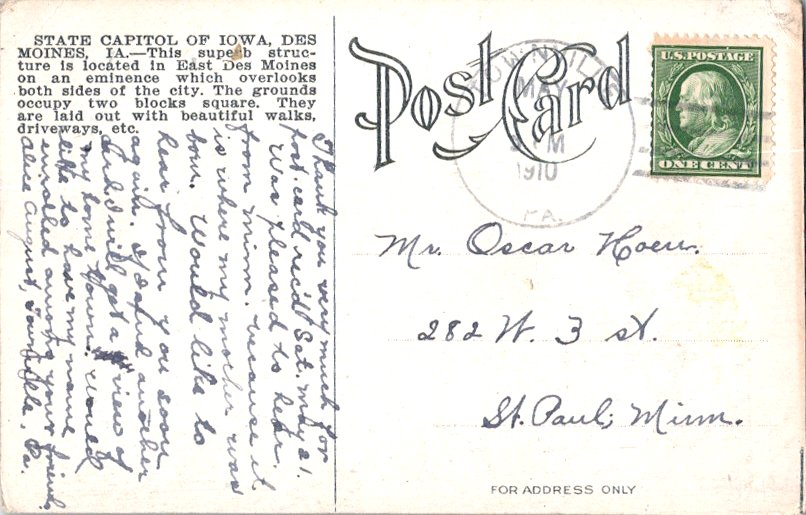 STATE CAPITOL OF IOWA, DES
MOINES, IA.—This superb struc-
ture is located in East Des Moines
on an eminence which overlooks
both sides of the city. The grounds
occupy two blocks square. They
are laid out with beautiful walks,
driveways, etc.
Thank you very much for
post card rec'd Sat. May 21.
Was pleased to hear
from Minn. because it
is where my mother was
born. Would like to
hear from you soon
again. Send another
and I will get a view of
my home town. Would
like to have my name
enrolled among your friends.
Alice August, Pa.
Post Card
MAY
PM
1910
PA.
U.S. POSTAGE
ONE CENT
Mr. Oscar
282 W. 3 st.
St. Paul, Minn.
FOR ADDRESS ONLY